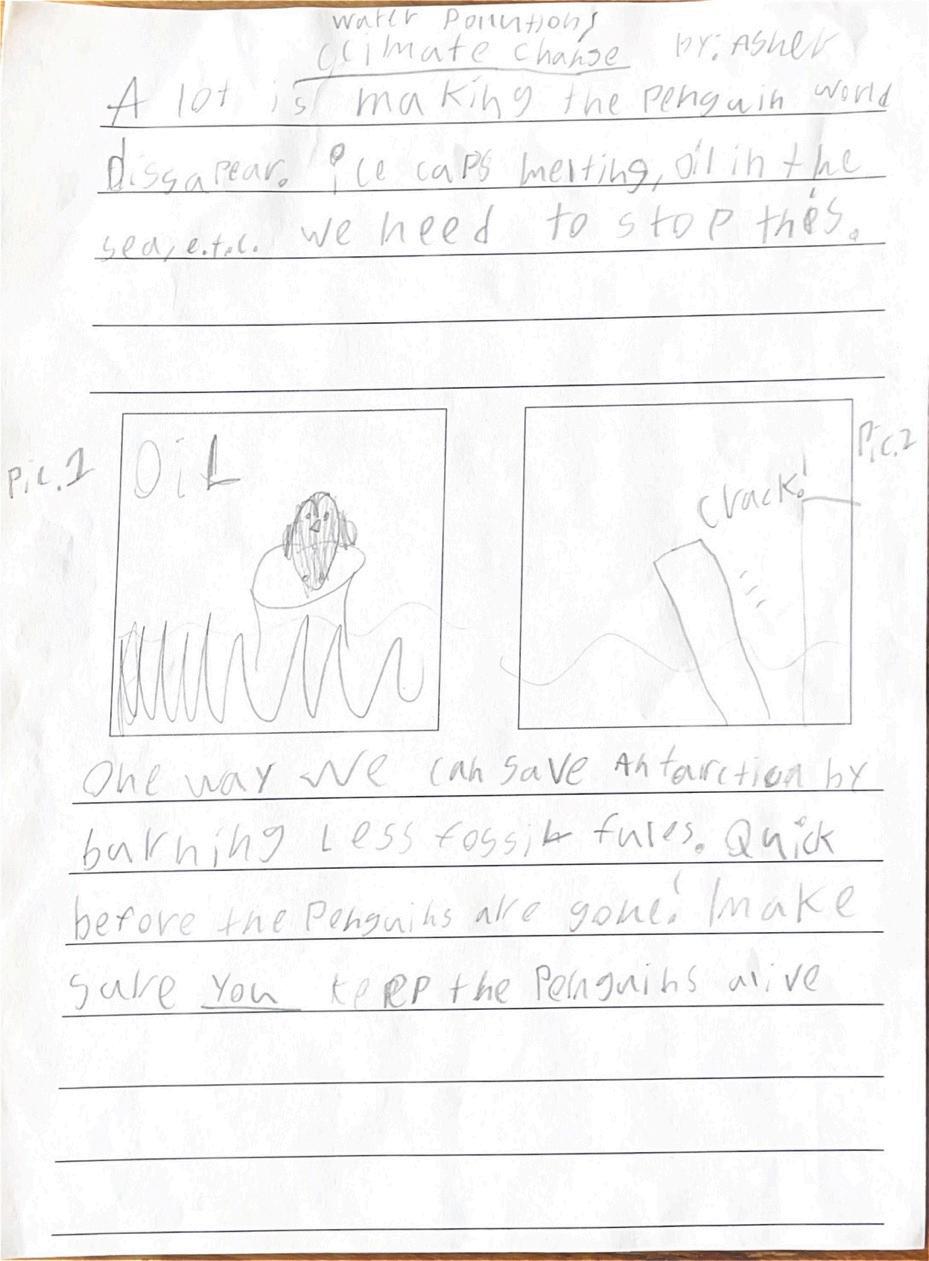 Water Pollution,
climate change by: Asher
A lot is making the Penguin world
dissapear. ice caps melting, oil in the
sea, e.t.c. we need to stop this.
Pic.1
OiL
Pic.2
Crack!
One way we can save Antarction by
burning Less fossiL fules. Quick
before the Penguins are gone! make
sure You keep the Penguins alive